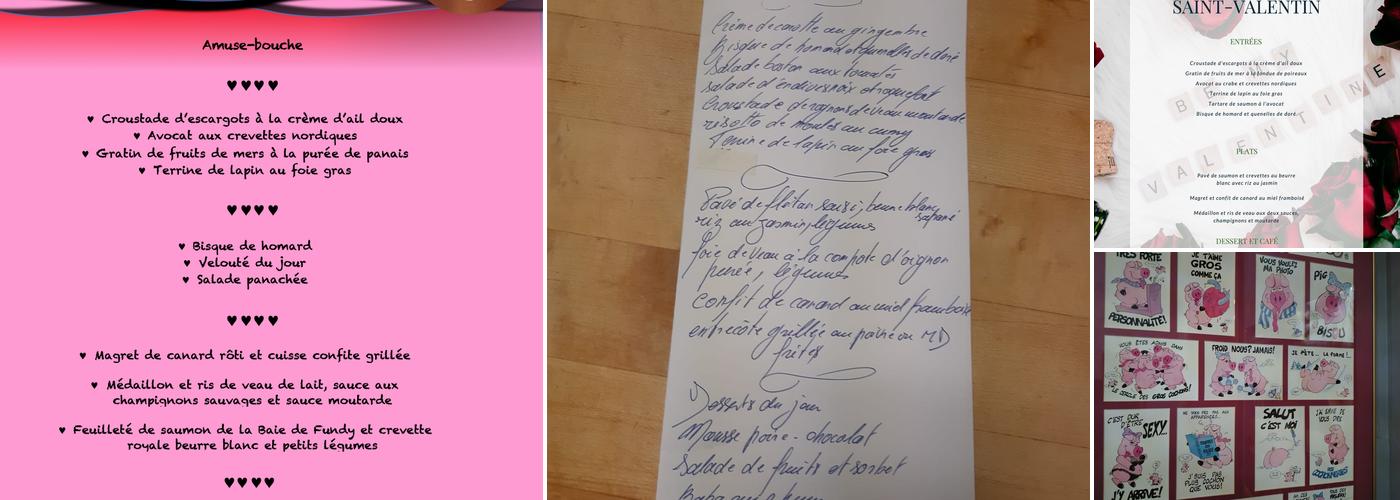 Amuse-bouche
♥♥♥♥
♥ Croustade d'escargots à la crème d'ail doux
♥ Avocat aux crevettes nordiques
♥ Gratin de fruits de mers à la purée de panais
♥ Terrine de lapin au foie gras
♥♥♥♥
♥ Bisque de homard
♥ Velouté du jour
♥ Salade panachée
♥♥♥♥
♥ Magret de canard rôti et cuisse confite grillée
♥ Médaillon et ris de veau de lait, sauce aux
champignons sauvages et sauce moutarde
♥ Feuilleté de saumon de la Baie de Fundy et crevette
royale beurre blanc et petits légumes
♥♥♥♥
Crème de carotte au gingembre
Bisque de homard et quenelles de doré
Salade boston aux tomates
Salade d'endives noix et roquefort
Croustade de rognons de veau moutarde
risotto de moules au curry
Terrine de lapin au foie gras
Pavé de flétan saisi, beurre blanc
safrané
riz au jasmin, légumes
foie de veau à la compote d'oignon
purée, légumes
Confit de canard au miel framboise
entrecôte grillée au poivre ou MD
frites
Desserts du jour
Mousse poire - chocolat
Salade de fruits et sorbet
Baba au rhum
SAINT-VALENTIN
ENTRÉES
Croustade d'escargots à la crème d'ail doux
Gratin de fruits de mer à la fondue de poireaux
Avocat au crabe et crevettes nordiques
Terrine de lapin au foie gras
Tartare de saumon à l'avocat
Bisque de homard et quenelles de doré
BE MY
VALENTINE
PLATS
Pavé de saumon et crevettes au beurre
blanc avec riz au jasmin
Magret et confit de canard au miel framboisé
Médaillon et ris de veau aux deux sauces,
champignons et moutarde
DESSERT ET CAFÉ
TRÈS FORTE
PERSONNALITÉ!
JE T'AIME
GROS
COMME ÇA
VOUS VOULEZ
MA PHOTO
PIG
BISOU
VOUS ÊTES ADMIS DANS
LE CERCLE DES GROS COCHONS!
FROID NOUS? JAMAIS!
JE PÈTE... LA FORME!..
C'EST DUR
D'ÊTRE
SEXY...
J'Y ARRIVE!
J'SUIS PAS
PLUS COCHON
QUE VOUS!
SALUT
C'EST MOI
J'AI ENVIE DE
VOUS DIRE
DES
COCHONNERIES